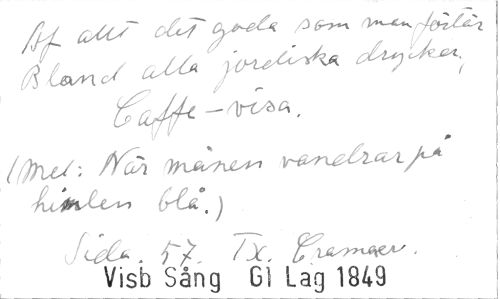 Af allt det goda som man förtär
Bland alla jordiska drycker,
Caffe-visa.
(Mel: När månen vandrar på
himlen blå.)
Sida. 57. Tx. Cramaer.
Visb Sång Gl Lag 1849